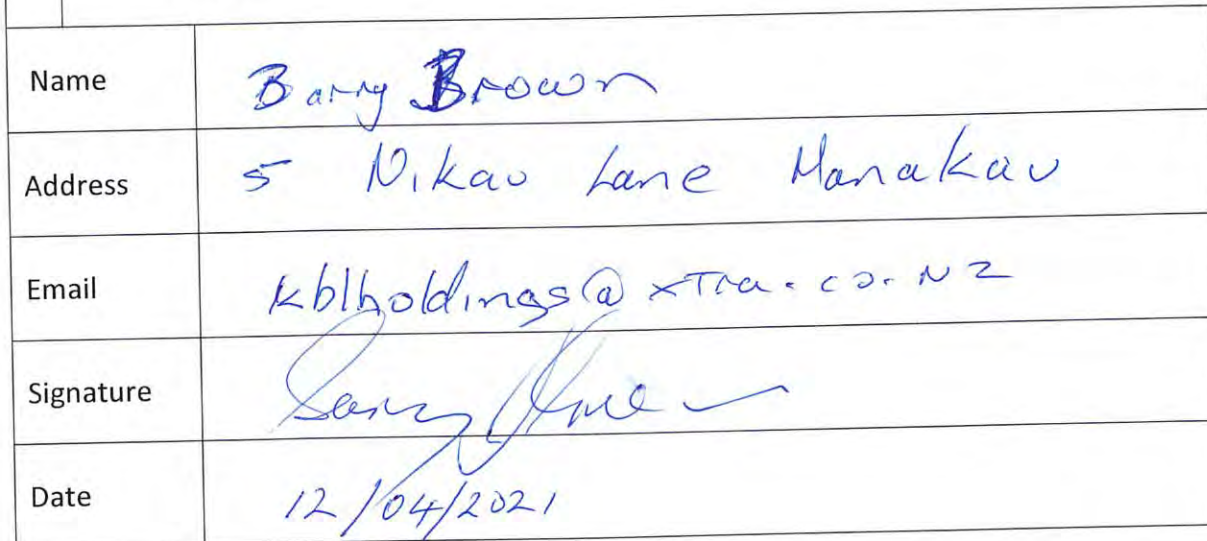 Name Barry Brown
Address 5 Nikau Lane Manakau
Email kblholdings@xtra.co.nz
Signature Barry
Date 12/04/2021